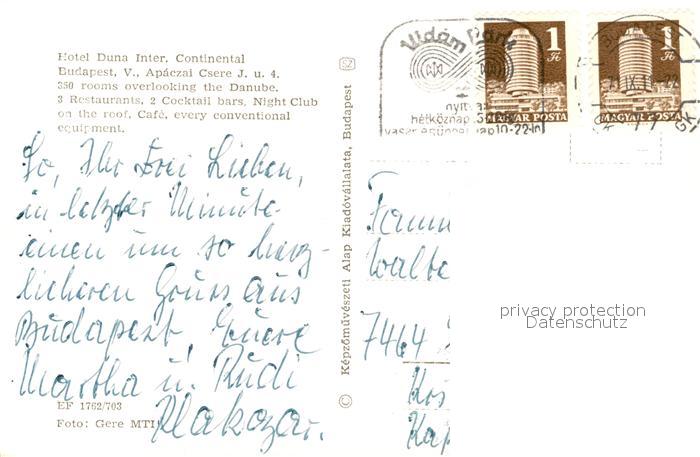 Hotel Duna Inter. Continental
Budapest, V., Apáczai Csere J. u. 4.
350 rooms overlooking the Danube.
3 Restaurants, 2 Cocktail bars, Night Club
on the roof, Café, every conventional
equipment.
So, Ihr Drei Lieben,
in letzter Minute
einen um so herz-
licheren Gruss aus
Budapest, Euere
Martha u. Rudi
EF 1762/703
Foto: Gere MTI
© Képzőművészeti Alap Kiadóvállalata, Budapest
Vidám Park
hétköznap
10-22-ig
1 Ft
MAGYAR POSTA
1 Ft
MAGYAR POSTA
Walte
7464
privacy protection
Datenschutz